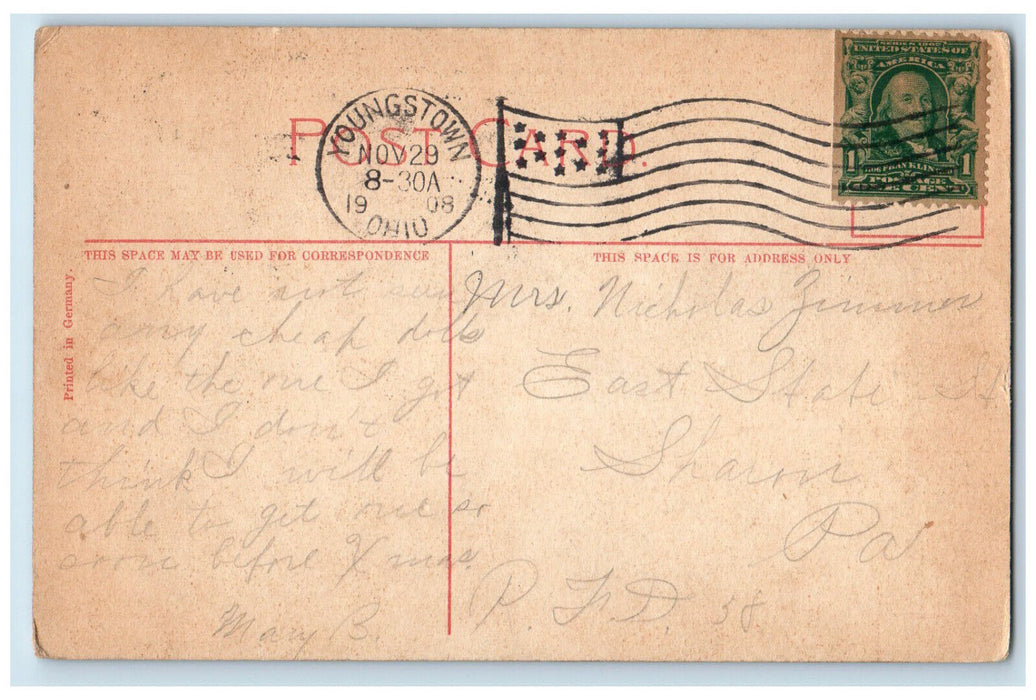 POST CARD.
YOUNGSTOWN
NOV 29
8-30A
1908
OHIO
SERIES 1902
UNITED STATES OF
AMERICA
1 FRANKLIN 1
POSTAGE
ONE CENT
THIS SPACE MAY BE USED FOR CORRESPONDENCE
THIS SPACE IS FOR ADDRESS ONLY
Printed in Germany.
I have not seen
any cheap dolls
like the one I got
and I don't
think I will be
able to get one so
soon before Xmas.
Mary B.
Mrs. Nicholas Zimmer
East State St
Sharon
Pa
R. F. D. 58